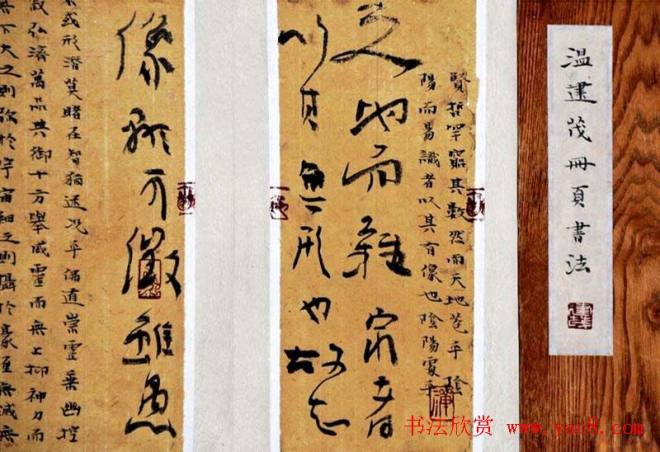 温建茂冊頁書法
賢哲罕窮其數然而天地苞乎陰
陽而易識者以其有像也陰陽處乎
天地而難窮者
以其無形也故知
像顯可徵雖愚
不惑形潛莫睹在智猶迷况乎佛道崇虛乘幽控
寂弘濟萬品典御十方舉威靈而無上抑神力而
無下大之則彌於宇宙細之則攝於豪釐無滅無
书法欣赏 www.yac8.com